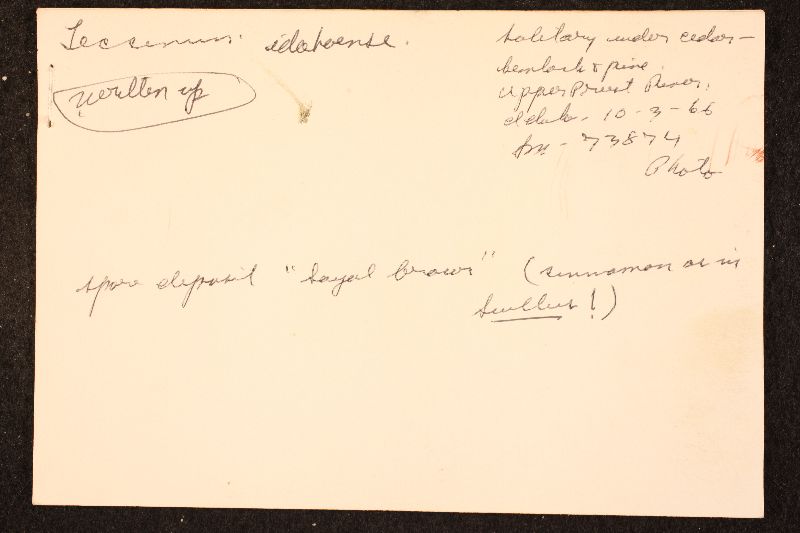 Leccinum idahoense.
written up
Solitary under cedar-
hemlock & pine.
Upper Priest River,
Idaho. 10-3-66
Sm - 73874
Photo
spore deposit "Sayal brown" (cinnamon as in
Suillus!)